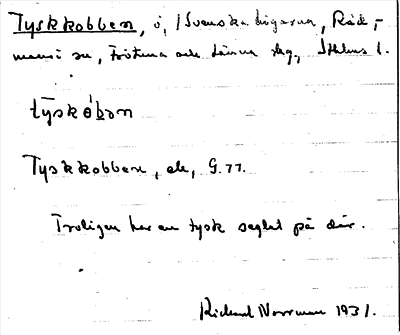 Tyskkobben, ö, i Svenska högarna, Råd-
mansö sn, Frötuna och Länna skg, Sthlms l.
tyskobən
Tyskkobben, ek, G. 77.
Troligen har en tysk seglat på där.
Rickard Norrman 1931.